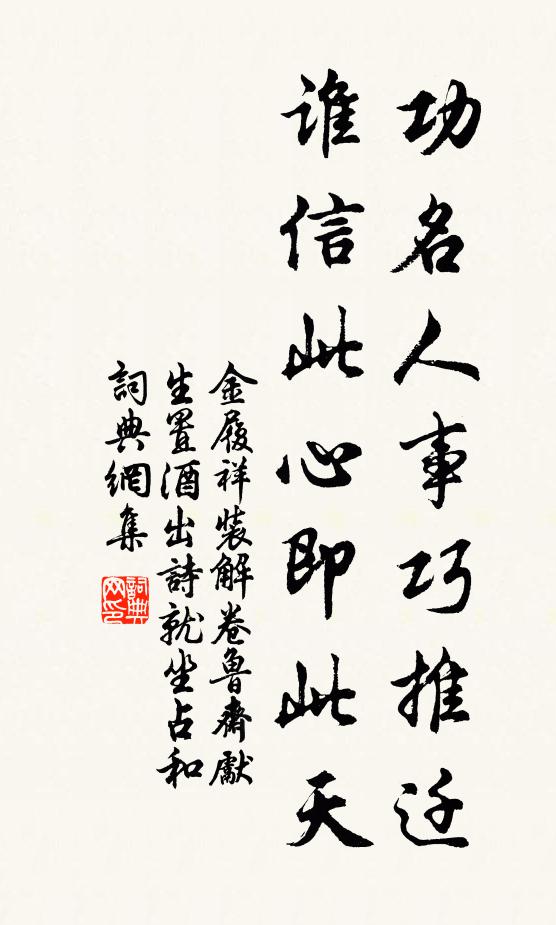 功名人事巧推迁
谁信此心即此天
金履祥裝解卷魯齋獻
生置酒出詩就坐占和
詞典網集
詞典網印